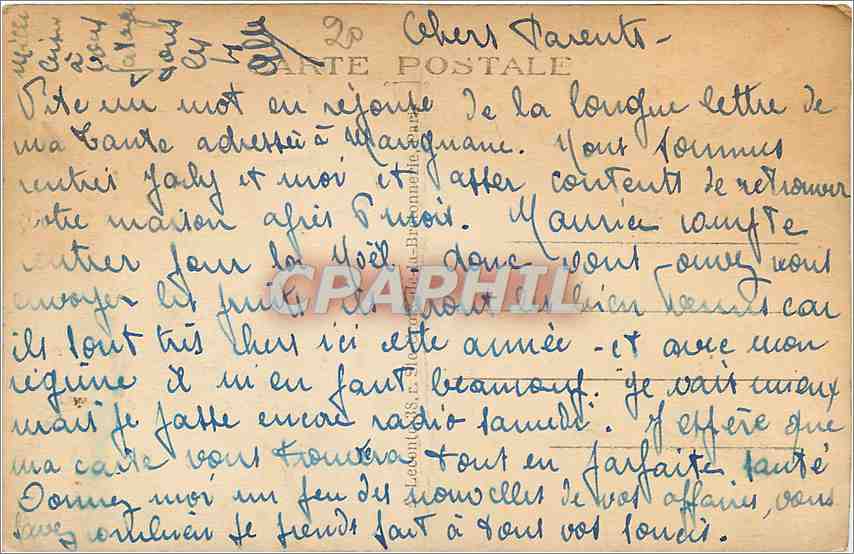 20
Chers Parents -
CARTE POSTALE
Vite un mot en réponse de la longue lettre de
ma tante adressée à Marignane. Nous sommes
rentrés Jacky et moi et asser contents de retrouver
notre maison après 5 mois. Maurice compte
rentrer pour la Noël, donc vous pouvez nous
envoyer les fruits ils seront les bien venus car
ils sont très chers ici cette année - et avec mon
régime il m'en faut beaucoup. Je vais mieux
mais je passe encore radio samedi. J'espère que
ma carte vous trouvera tous en parfaite santé
Donnez moi un peu des nouvelles de vos affaires, vous
savez combien je prends part à tous vos soucis.
Mille
à vous
tous
A. Leconte, 38, r. Ste-Croix-de-la-Bretonnerie, Paris
CPAPHIL